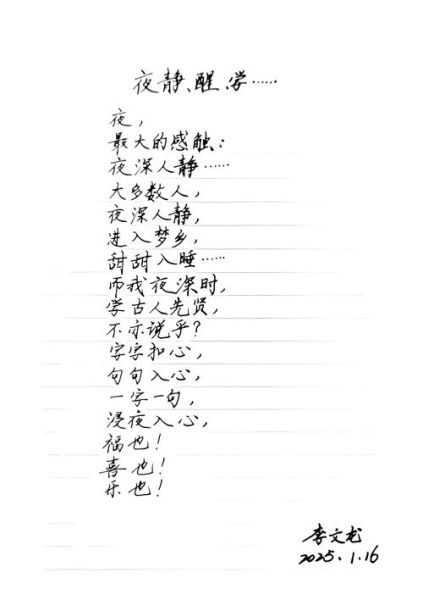 夜静、醒、学……
夜，
最大的感触：
夜深人静……
大多数人，
夜深人静，
进入梦乡，
甜甜入睡……
而我夜深时，
学古人先贤，
不亦说乎？
字字扣心，
句句入心，
一字一句，
浸夜入心，
福也！
喜也！
乐也！
李文龙
2025.1.16